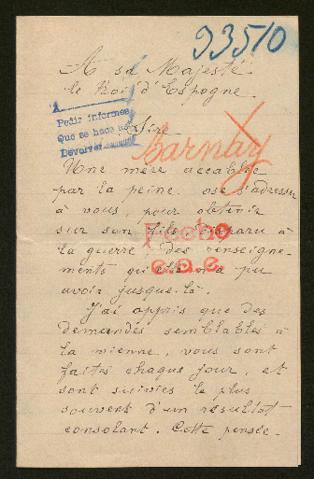 93510
A sa Majesté
le Roi d'Espagne
Pedir informes
Que se hace
Devolver
Sire
Carnoy
Une mère accablée
par la peine ose s'adresser
à vous pour obtenir
sur son fils disparu à
la guerre, des renseigne-
ments qu'elle n'a pu
avoir jusque là.
Fecho
J'ai appris que des
demandes semblables à
la mienne, vous sont
faites chaque jour, et
sont suivies le plus
souvent d'un résultat
consolant. Cette pensée